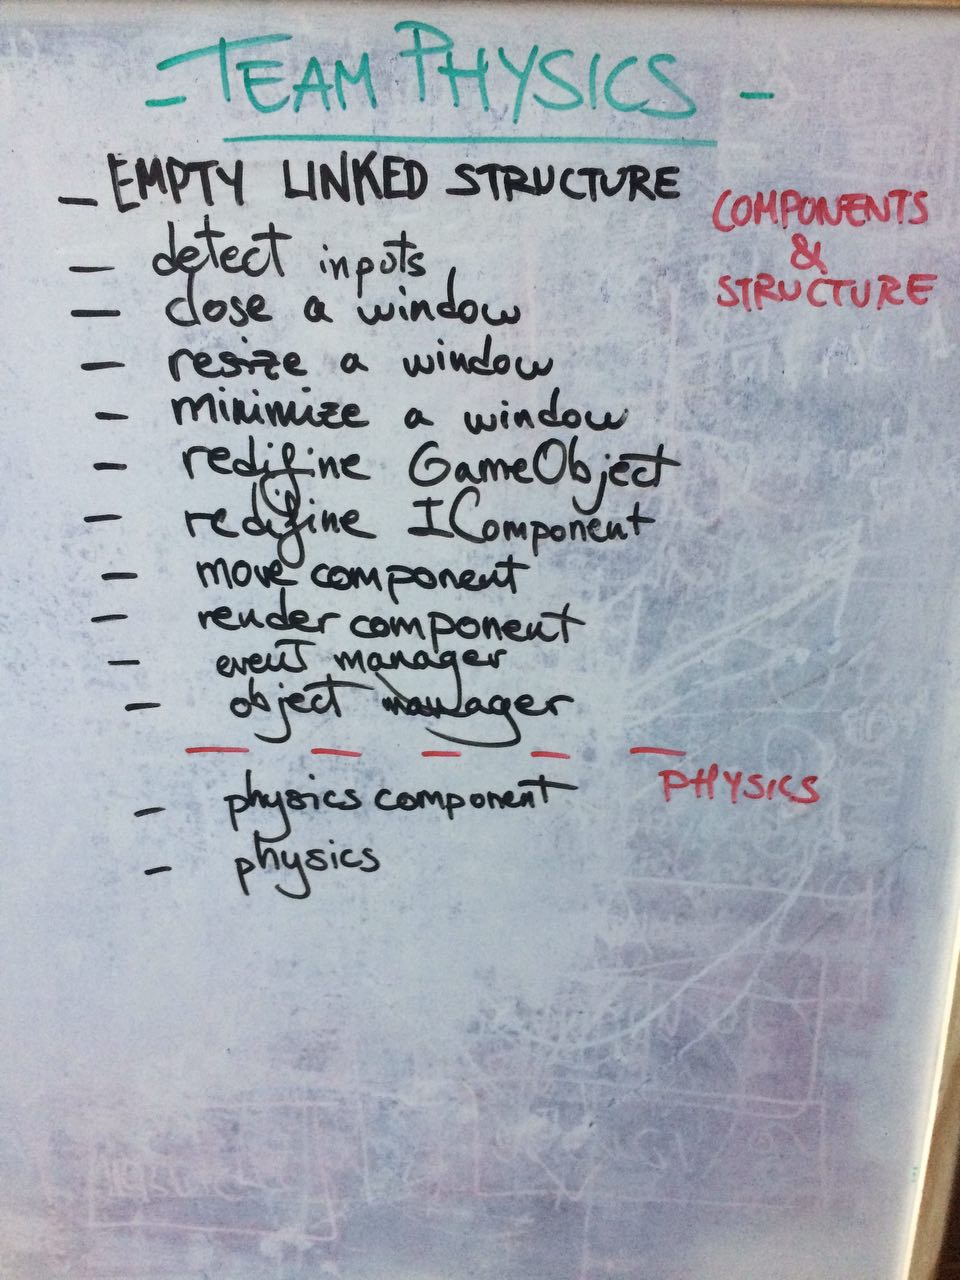 - TEAM PHYSICS -
- EMPTY LINKED STRUCTURE
COMPONENTS
&
STRUCTURE
- detect inputs
- close a window
- resize a window
- minimize a window
- redifine GameObject
- redifine IComponent
- move component
- render component
- event manager
- object manager
PHYSICS
- physics component
- physics